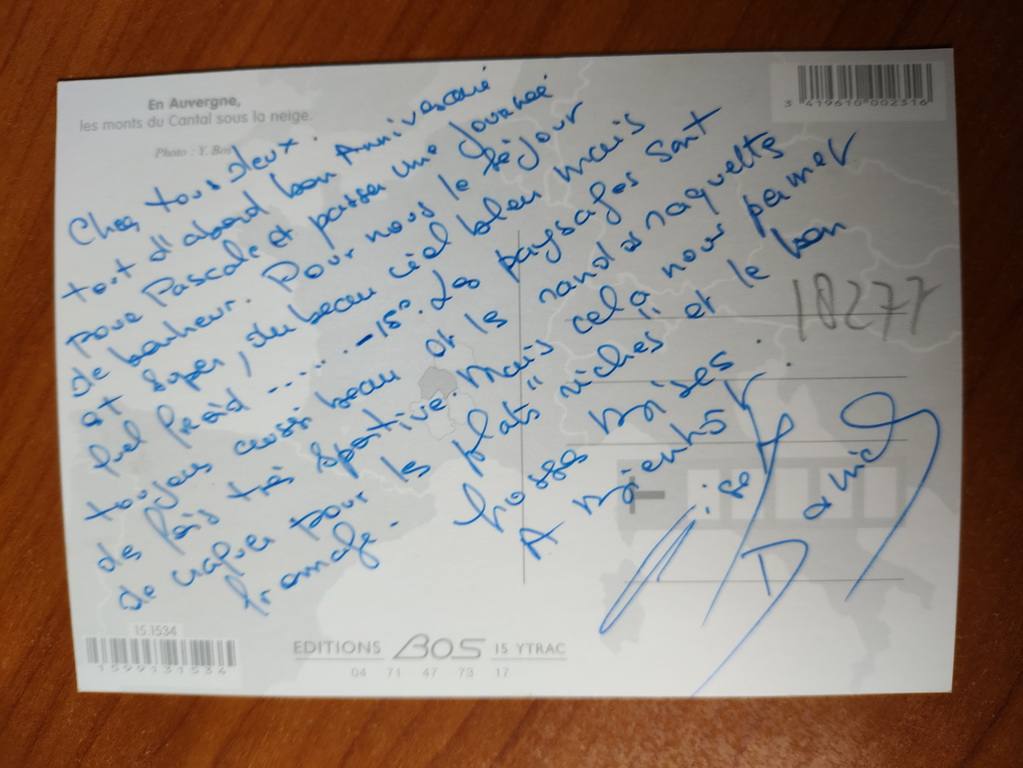 En Auvergne,
les monts du Cantal sous la neige.
Photo : Y. Bos
3 419610 002316
Cher tous deux.
tout d'abord bon Anniversaire
pour Pascale et passer une journée
de bonheur. Pour nous le séjour
et super, du beau ciel bleu mais
quel froid ..... -15°. Les paysages sont
toujours aussi beau et les randos raquette
des fois très sportive. Mais celà nous permet
de craquer pour les plats "riches" et le bon
fromage.
Grosses Bises.
A Bientôt.
Daniel
18277
15.1534
1599131534
EDITIONS BOS 15 YTRAC
04 71 47 73 17